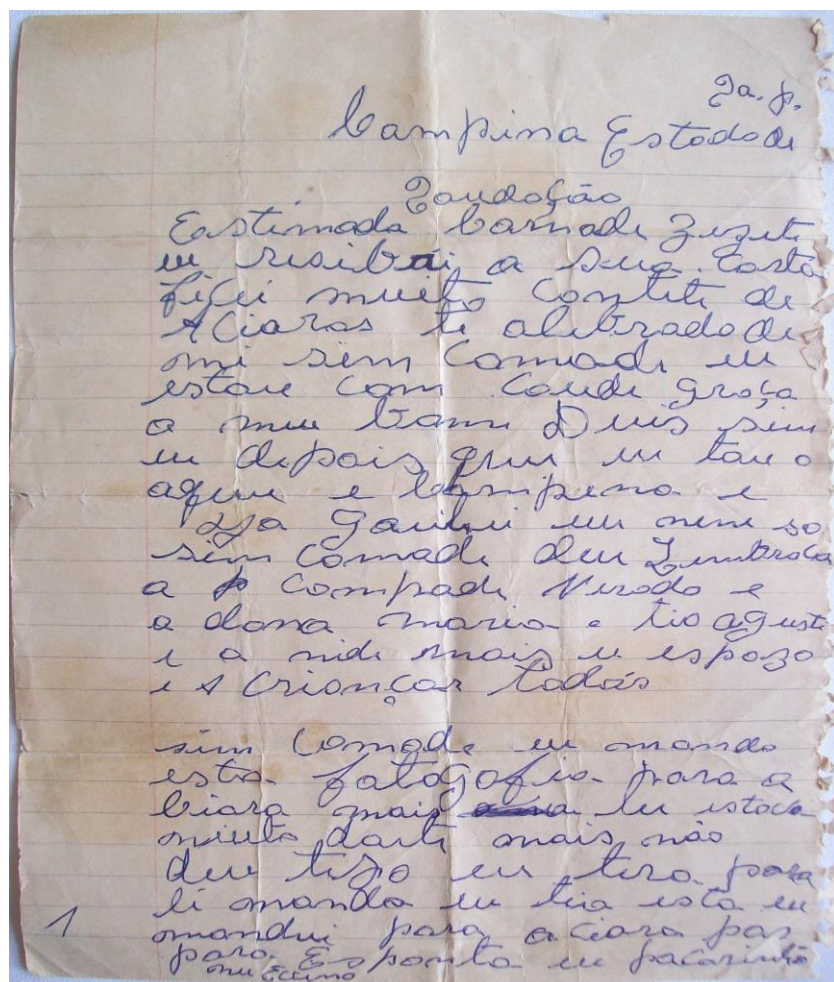 Sa. p.
Campina Estado de
Saudação
Estimada Comade Zezete
eu resibai a sua Carta
fiquei muito Contete de
A Ciaras te alebrado de
mi sim Comade eu
estou com Caude graça
a meu bam Deus sim
eu depois que eu tou o
aque e Campina e
ja eu nem so
sim Comade deu Lembraca
a Compade e
a dona maria e tio agusti
e a nide mais u espozo
e A Criancas todas
sim Comade eu mando
esta fatogofia para a
Ciara mais eu estava
muito darti mais não
deu tizo eu tera para
li manda eu tia esta eu
mandei para a Ciara par
para Esponta eu pacarinto
1